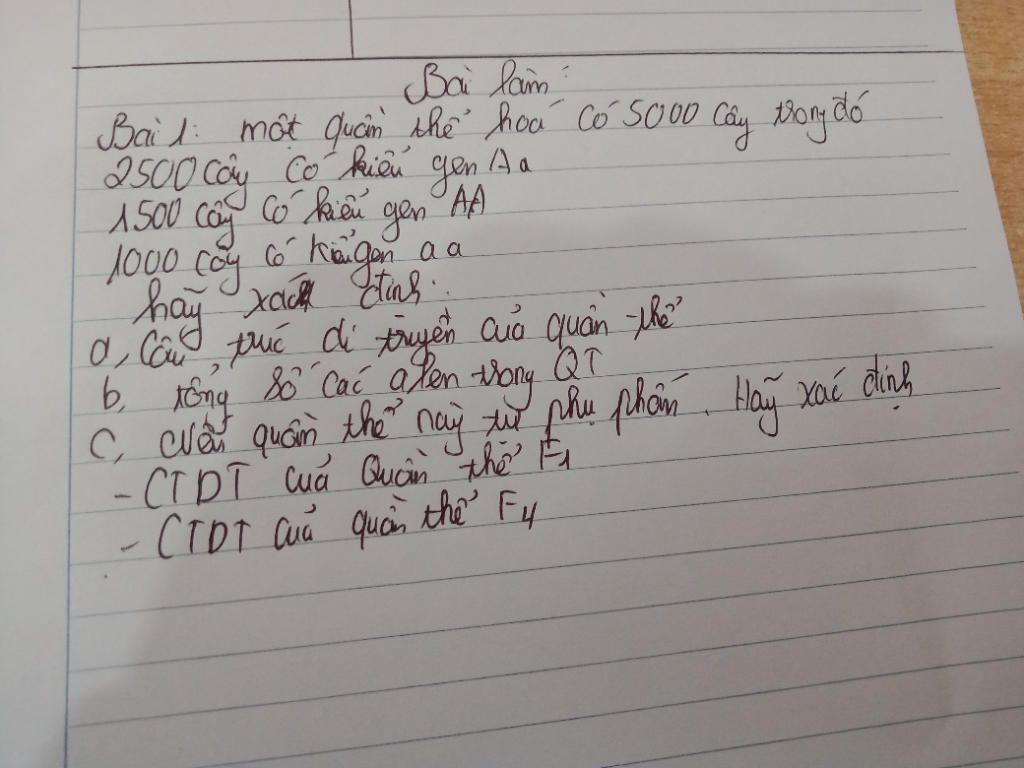 Bài làm:
Bài 1: một quần thể hoá có 5000 cây trong đó
2500 cây có kiểu gen Aa
1500 cây có kiểu gen AA
1000 cây có kiểu gen aa
hãy xác định:
a, Cấu trúc di truyền của quần thể
b, tổng số các alen trong QT
C, quần thể này tự phụ phấn. Hãy xác định
- CTDT của Quần thể F1
- CTDT của quần thể F4